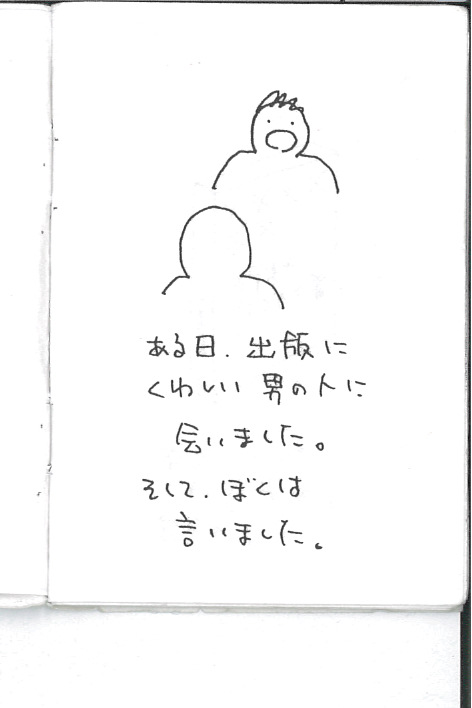 ある日、出版に
くわしい男の人に
会いました。
そして、ぼくは
言いました。